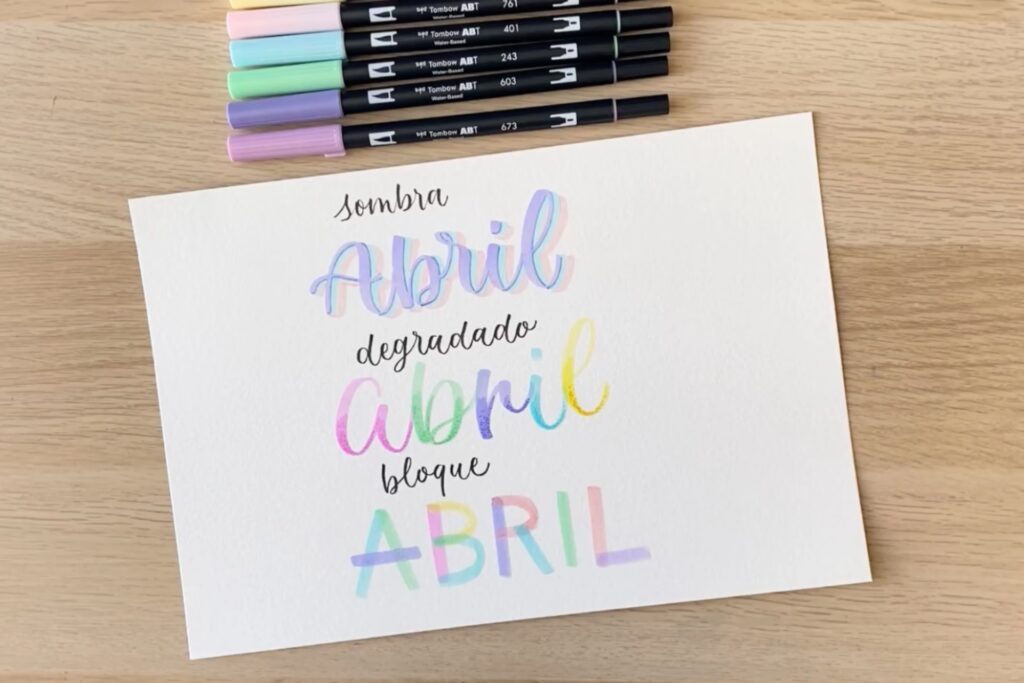 Tombow ABT 761
Water-Based
Tombow ABT 401
Water-Based
Tombow ABT 243
Water-Based
Tombow ABT 603
Water-Based
Tombow ABT 673
sombra
Abril
degradado
abril
bloque
ABRIL